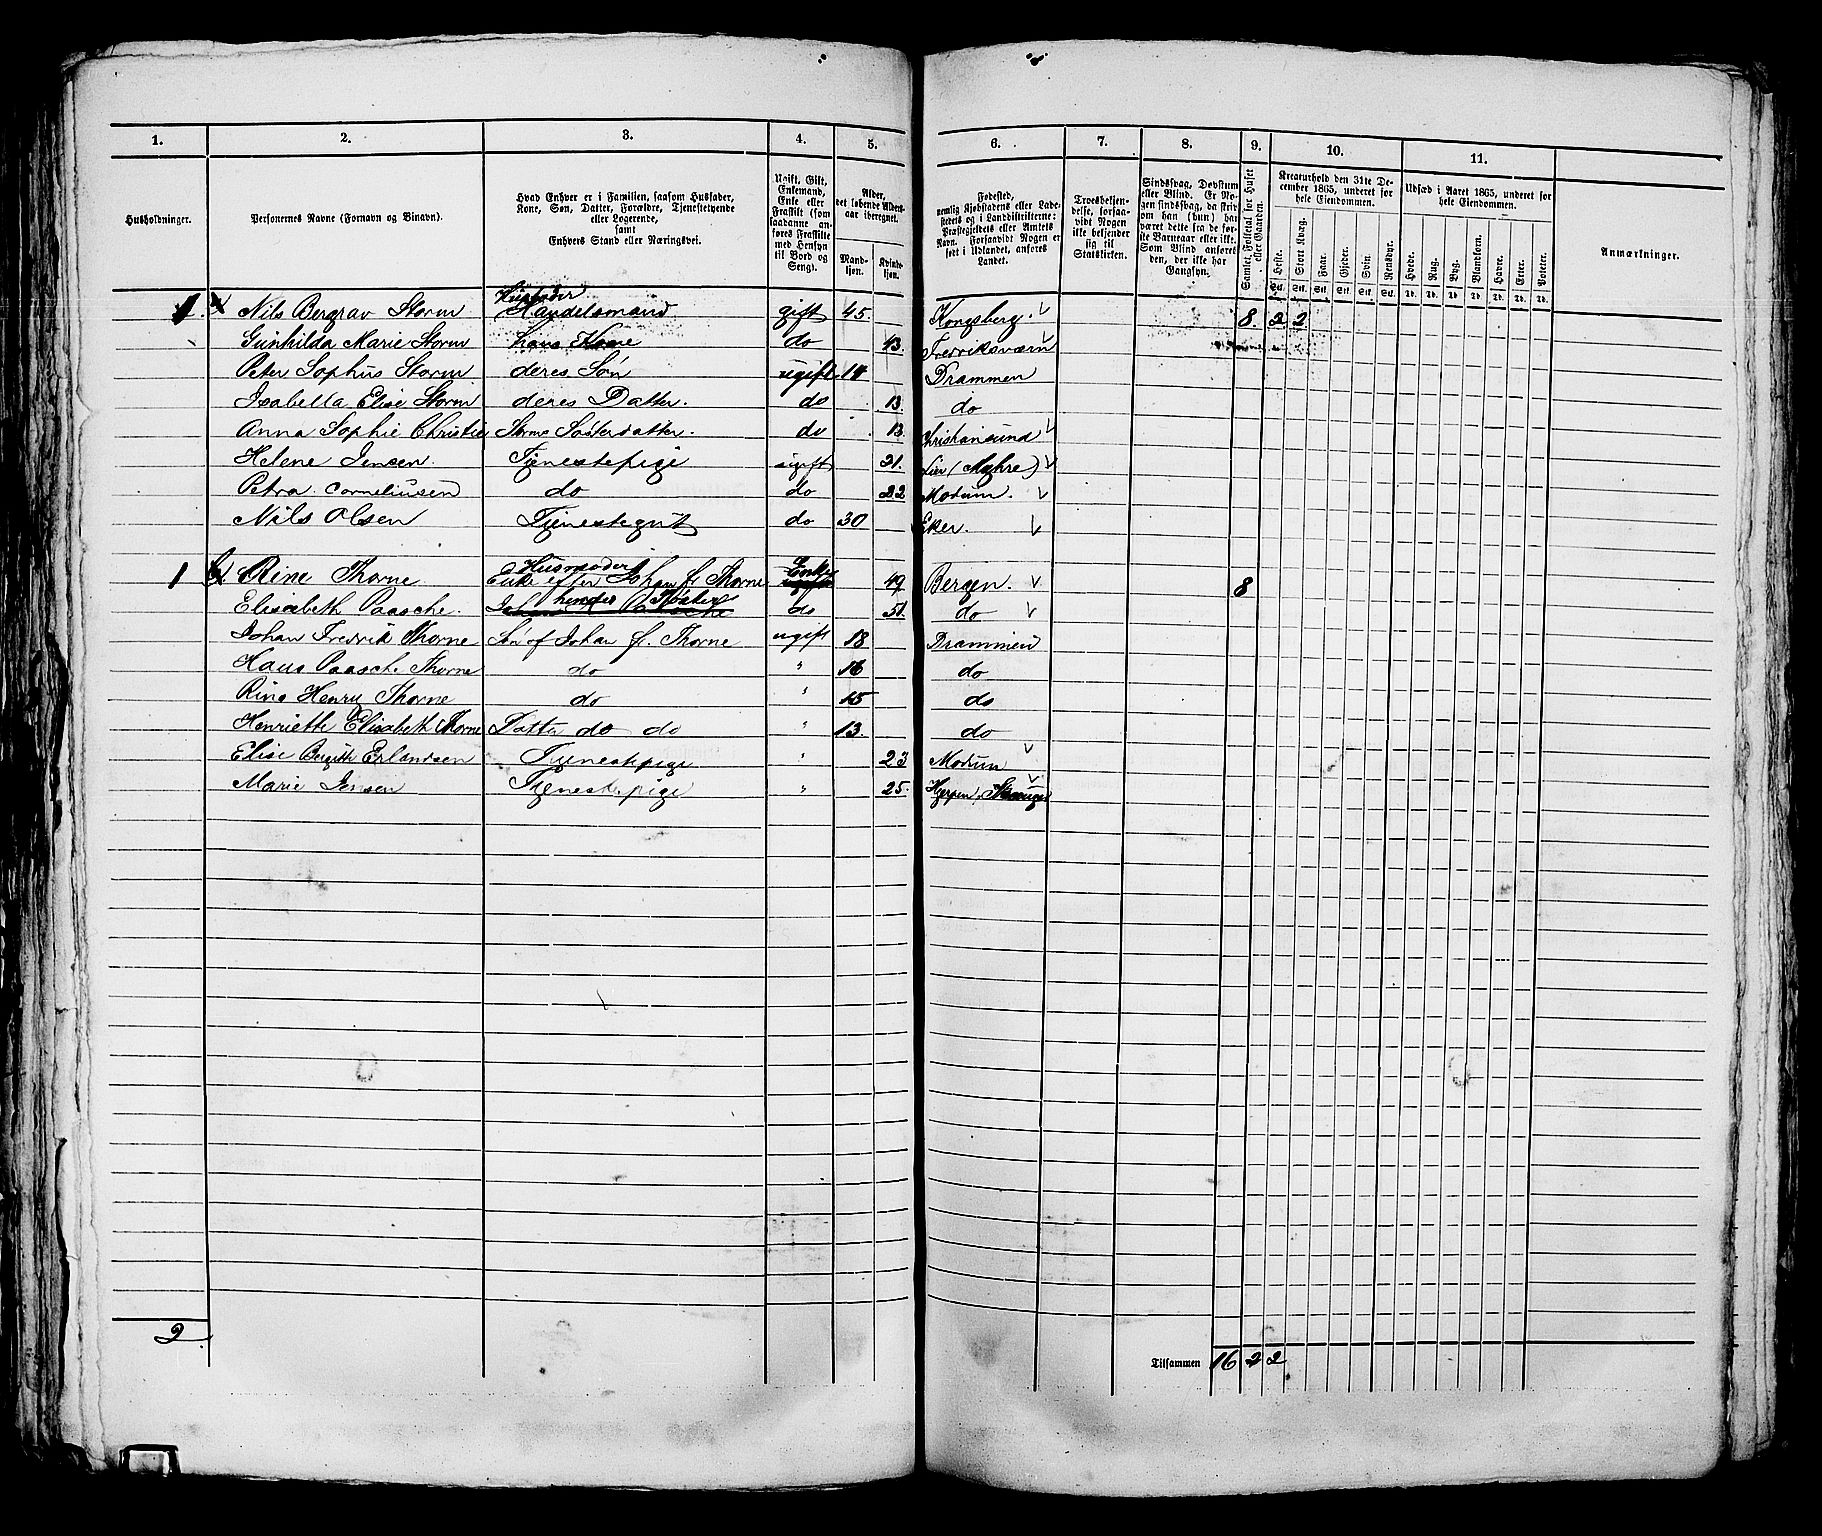 1. 2. 3. 4. 5. 6. 7. 8. 9. 10. 11.
Husholdninger.
Personernes Navne (Fornavn og Binavn).
Hvad Enhver er i Familien, saasom Husfader,
Kone, Søn, Datter, Forældre, Tjenestetyende
eller Logerende,
samt
Enhvers Stand eller Næringsvei.
Ugift, Gift,
Enkemand,
Enke eller
Fraskilt (som
saadanne an-
føres Fraskilte
med Hensyn
til Bord og
Seng).
Alder,
det løbende Alders-
aar iberegnet.
Mand-
kjøn.
Kvinde-
kjøn.
Fødested,
nemlig Kjøbstadens eller Lade-
stedets og i Landdistrikterne:
Præstegjeldets eller Amtets
Navn. Forsaavidt Nogen er
født i Udlandet, anføres
Landet.
Troesbekjen-
delse, forsaa-
vidt Nogen
ikke bekjender
sig til
Statskirken.
Sindssvag, Døvstum
eller Blind. Er No-
gen sindssvag, da skri-
ves om han (hun) har
været dette fra de før-
ste Barneaar eller ikke.
Som Blind anføres
den, der ikke har
Gangsyn.
Samlet Folketal for Huset
eller Gaarden.
Kreaturhold den 31te De-
cember 1865, underet for
hele Eiendommen.
Heste. Stort Kvæg. Faar. Gjeder. Svin. Rensdyr.
Stk. Stk. Stk. Stk. Stk. Stk.
Udsæd i Aaret 1865, underet for
hele Eiendommen.
Hvede. Rug. Byg. Blandkorn. Havre. Erter. Poteter.
Td. Td. Td. Td. Td. Td. Td.
Anmærkninger.
Husfader
1. Nils Bergrav Storm Handelsmand gift 45 Kongsberg. 8 2 2
Gunhilda Marie Storm hans Kone do 43. Fredriksværn
Peter Sophus Storm deres Søn ugift 14 Drammen
Isabella Elise Storm deres Datter. do 13. do
Anna Sophie Christie Storms Søsterdatter. do 13 Christiansund
Helene Jensen. Tjenestepige ugift 21. Lier (Myhre)
Petra Corneliusen do do 22 Modum.
Nils Olsen Tjenestegut do 30 Eker.
Husmoder Enke
1 Rine Thorne Enke efter Johan f. Thorne ugift 49 Bergen. 8
hendes Søster
Elisabeth Paasche. Johan Paasche do 51. do
Johan Fredrik Thorne Søn af Johan f. Thorne ugift 18 Drammen
Hans Paasche Thorne do " 16 do
Rine Henry Thorne do " 15 do
Henriette Elisabeth Thorne Datter do do " 13. do
Elise Bergith Erlandsen Tjenestepige " 23 Modum
Marie Jensen Tjenestepige " 25. Hjerpen
2
Tilsammen 16 2 2